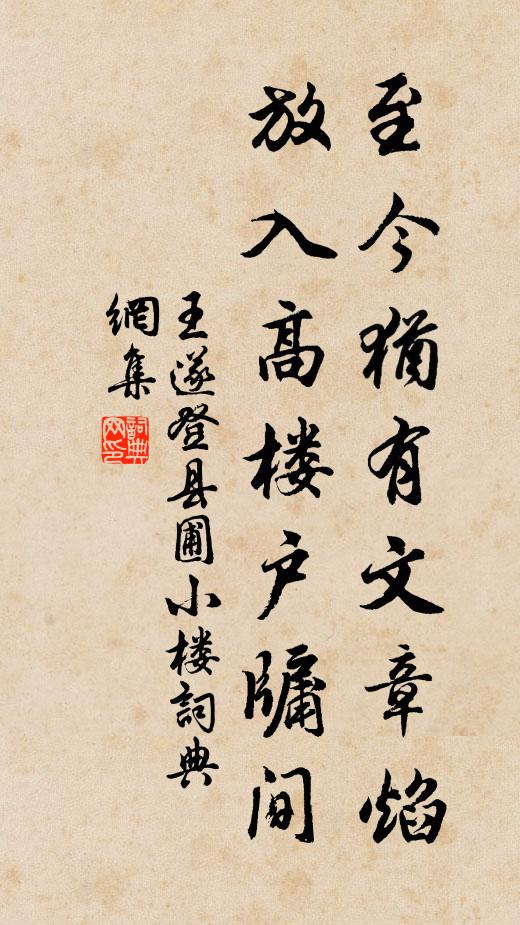 至今犹有文章焰
放入高楼户牖间
王遂登县圃小楼詞典
網集
詞典网印